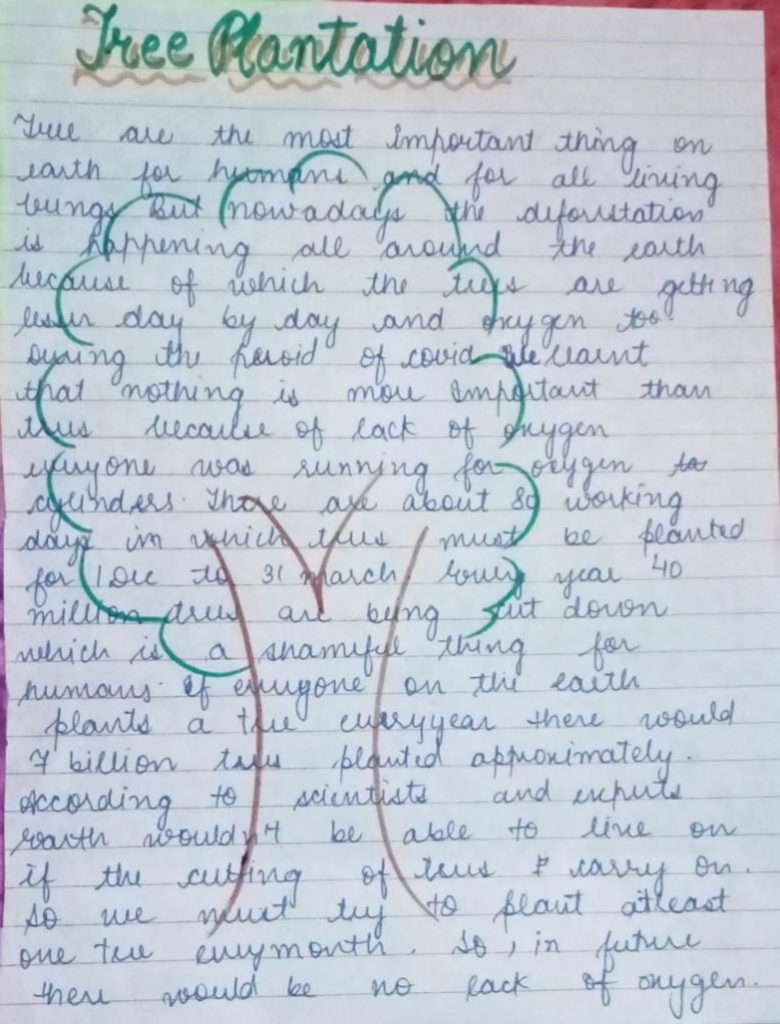 Tree Plantation
Tree are the most important thing on
earth for humans and for all living
beings But nowadays the deforestation
is happening all around the earth
because of which the trees are getting
lesser day by day and oxygen too
During the peroid of covid we learnt
that nothing is more important than
trees because of lack of oxygen
everyone was running for oxygen
cylinders. There are about 80 working
days in which trees must be planted
for 1 Dec to 31 march, every year 40
million trees are being cut down
which is a shameful thing for
humans. If everyone on the earth
plants a tree every year there would
7 billion trees planted approximately.
According to scientists and experts
earth wouldn't be able to live on
if the cutting of trees carry on.
So we must try to plant atleast
one tree every month. So, in future
there would be no lack of oxygen.